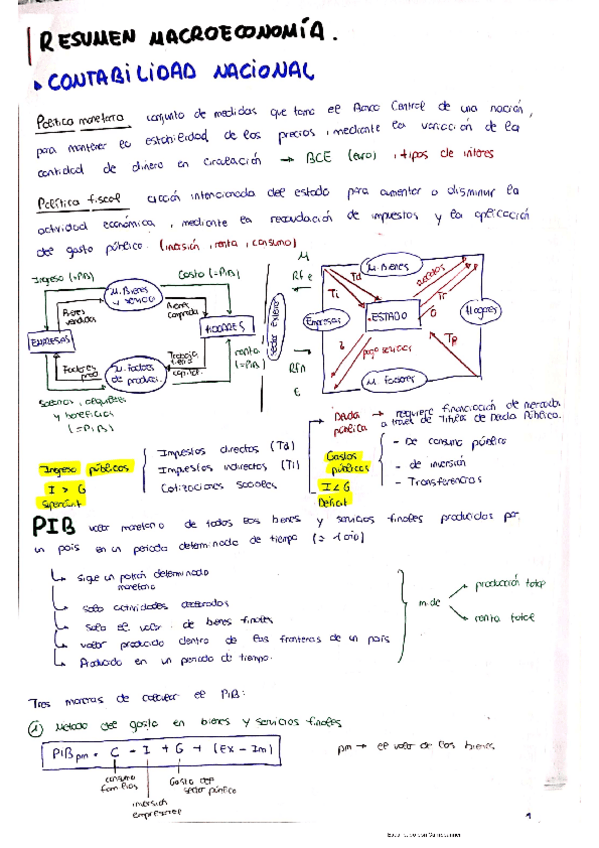 RESUMEN MACROECONOMÍA.
CONTABILIDAD NACIONAL
Política monetaria conjunto de medidas que toma el Banco Central de una nación,
para mantener la estabilidad de los precios, mediante la variación de la
cantidad de dinero en circulación → BCE (euro), tipos de interés
Política fiscal acción intencionada del estado para aumentar o disminuir la
actividad económica, mediante la recaudación de impuestos y la aplicación
del gasto público. (inversión, renta, consumo)
Ingreso (=PIB)
Gasto (=PIB)
M. Bienes
y servicios
Bienes
vendidos
Bienes
comprados
EMPRESAS
HOGARES
Factores
prod.
M. factores
de producc.
Trabajo
tierra
capital
renta
(=PIB)
Salarios, alquileres
y beneficios
(=PIB)
sector exterior
M
Rfe
Rfn
E
M. Bienes
Td
Ti
Tr
G
Empresas
ESTADO
Hogares
pago servicios
M. Factores
Ingresos públicos
I > G
Superávit
Impuestos directos (Td)
Impuestos indirectos (Ti)
Cotizaciones sociales
Deuda
pública → requiere financiación de mercado
a través de Títulos de Deuda Pública.
Gastos
públicos
I < G
Déficit
- De consumo público
- de inversión
- Transferencias
PIB valor monetario de todos los bienes y servicios finales producidos por
un país en un periodo determinado de tiempo (= 1 año)
Sigue un patrón determinado
monetario
solo actividades declaradas
solo el valor de bienes finales
valor producido dentro de las fronteras de un país
Producido en un periodo de tiempo.
mide
producción total
renta total
Tres maneras de calcular el PIB:
1) Método del gasto en bienes y servicios finales
PIBpm = C - I + G + (Ex - Im)
pm → el valor de los bienes
consumo
familias
Gasto del
sector público
inversión
empresarial
1